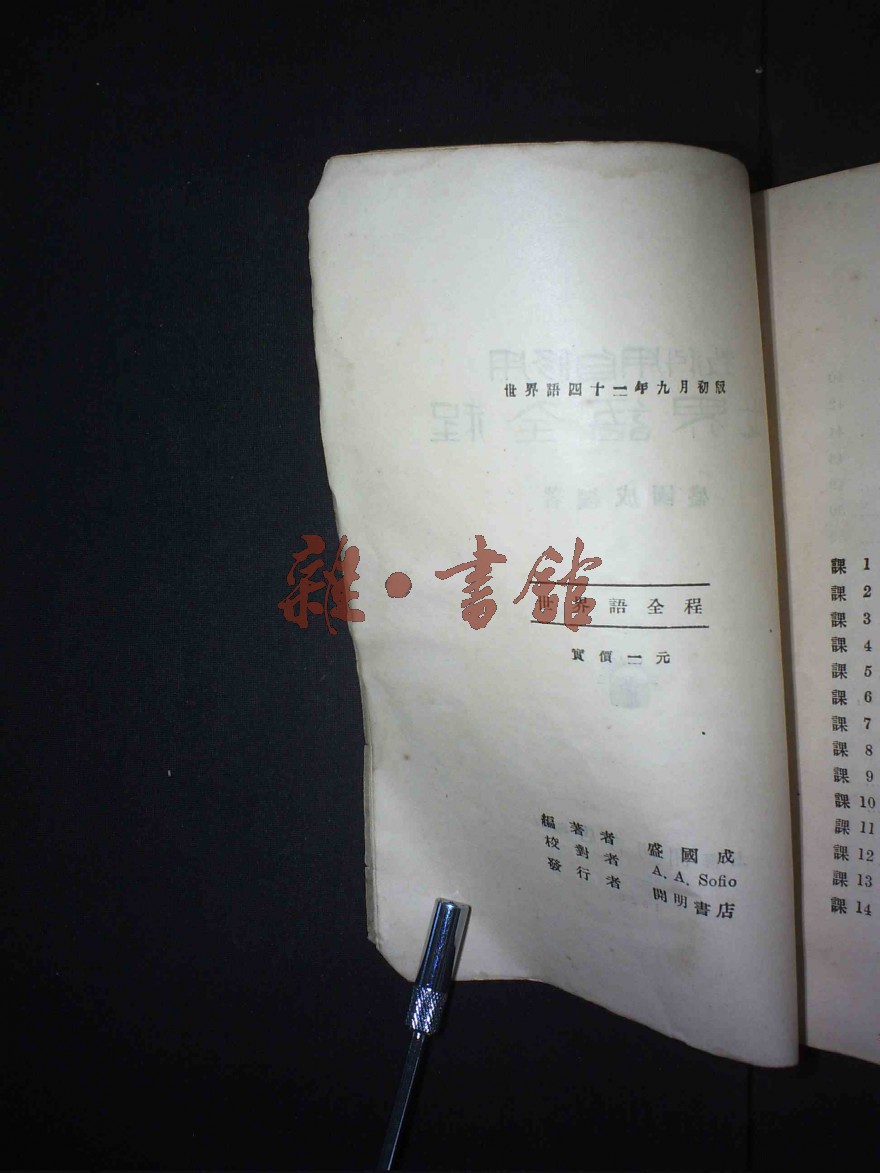 世界語四十二年九月初版
世界語全程
實價一元
編著者 盛國成
校對者 A. A. Sofio
發行者 開明書店
雜·書館
課 1
課 2
課 3
課 4
課 5
課 6
課 7
課 8
課 9
課 10
課 11
課 12
課 13
課 14